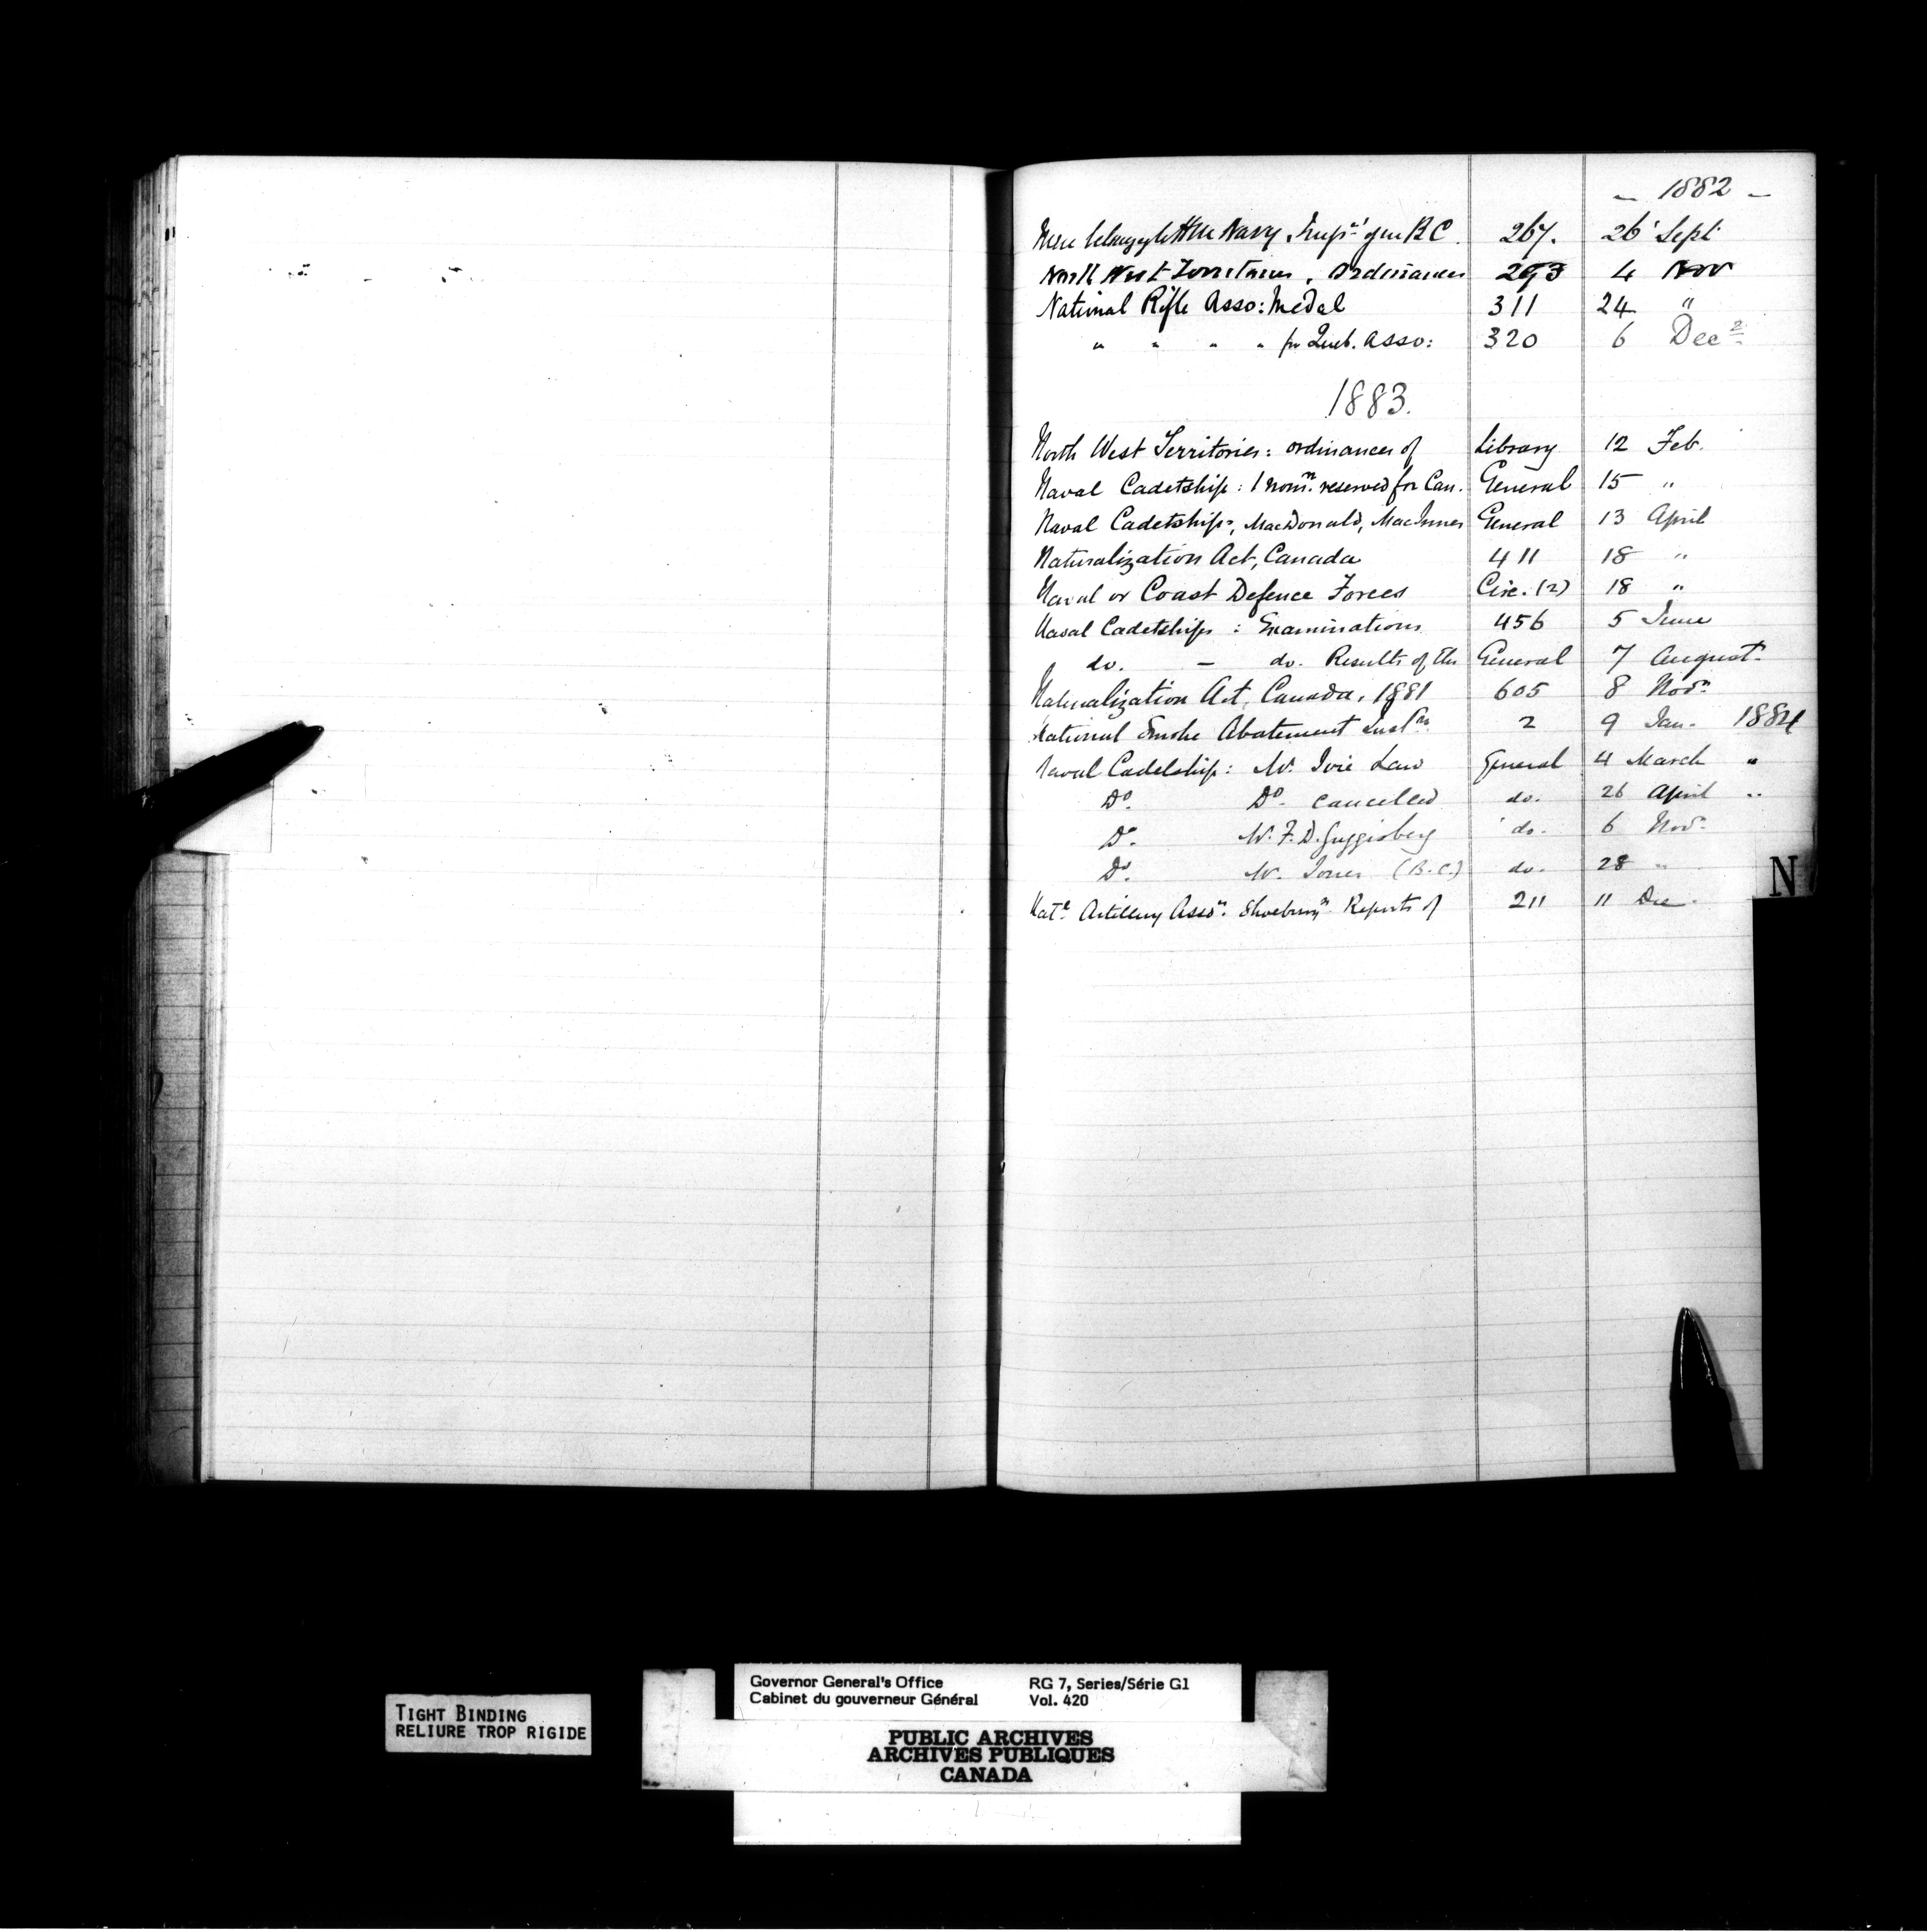 - 1882 -
Navy, B C. 267. 26 Sept
North West Territories, Ordinances 293 4 Nov
National Rifle Asso: Medal 311 24 "
" " " " for Queb. Asso: 320 6 Dec
1883.
North West Territories: ordinances of Library 12 Feb.
Naval Cadetship: 1 nomn. reserved for Can. General 15 "
Naval Cadetships, MacDonald, MacInnes General 13 April
Naturalization Act, Canada 411 18 "
Naval or Coast Defence Forces Circ. (2) 18 "
Naval Cadetships: Examinations 456 5 June
do. - do. Results of the General 7 August
Naturalization Act, Canada, 1881 605 8 Novr.
National Smoke Abatement Instn. 2 9 Jan. 1884
Naval Cadetship: Mr. Ivie Law General 4 March "
Do. Do. cancelled do. 26 April "
Do. Mr. F. D. Guggisberg do. 6 Novr.
Do. Mr. Jones (B.C.) do. 28 "
Natl. Artillery Asson. Shoeburyn. Reports of 211 11 Dec.
N
Governor General's Office RG 7, Series/Série G1
Cabinet du gouverneur Général Vol. 420
TIGHT BINDING
RELIURE TROP RIGIDE
PUBLIC ARCHIVES
ARCHIVES PUBLIQUES
CANADA